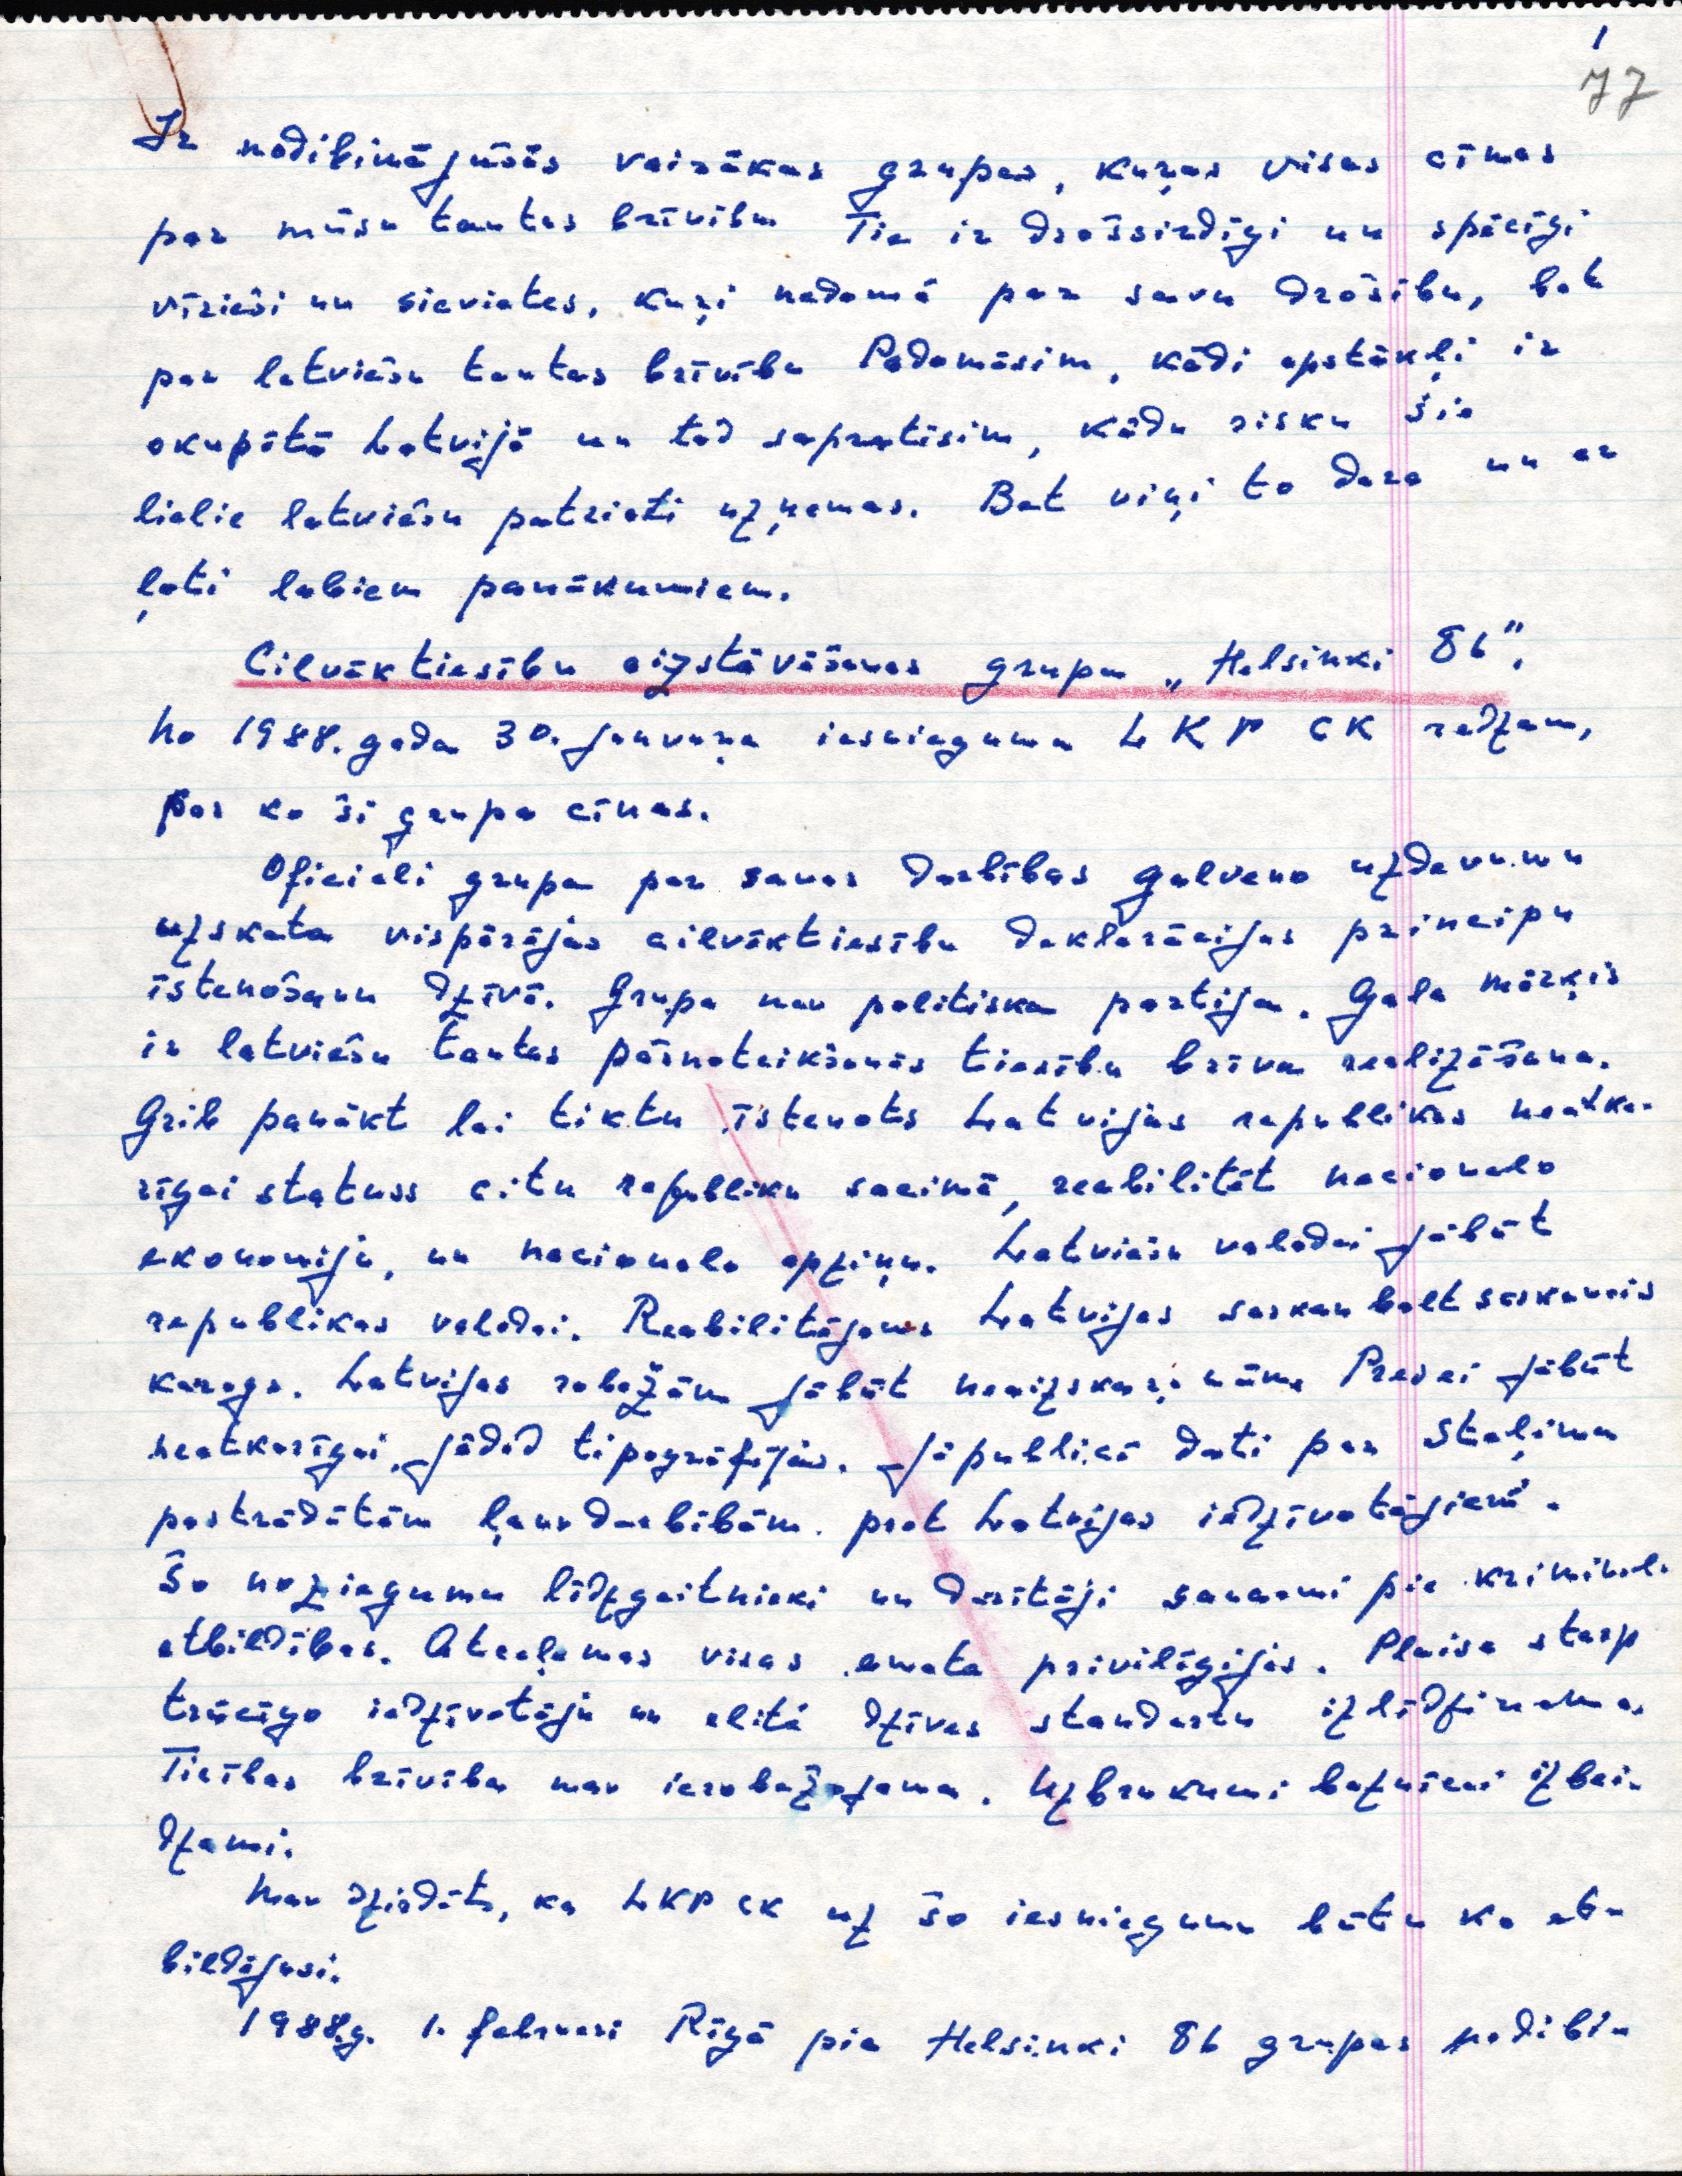 1
77
Ir nodibinājušās vairākas grupas, kuŗas visas cīnas
par mūsu tautas brīvību Tie ir drošsirdīgi un spēcīgi
vīrieši un sievietes, kuŗi nedomā par savu drošību, bet
par latviešu tautas brīvību Padomāsim, kādi apstākļi ir
okupētā Latvijā un tad sapratīsim, kādu risku šie
lielie latviešu patrioti uzņemas. Bet viņi to dara un ar
ļoti labiem panākumiem.
Cilvēktiesību aizstāvēšanas grupa „Helsinki 86".
No 1988. gada 30. janvaŗa iesnieguma LKP CK redzam,
par ko šī grupa cīnas.
Oficiali grupa par savas darbības galveno uzdevumu
uzskata vispārējas cilvēktiesību deklarācijas principu
īstenošanu dzīvē. Grupa nav politiska partija. Gala mērķis
ir latviešu tautas pašnoteikšanās tiesību brīva realizēšana.
Grib panākt lai tiktu īstenots Latvijas republikas neatka-
rīgai statuss citu republiku saeimā, reabilitēt nacionalo
ekonomiju, un nacionalo apziņu. Latviešu valodai jābūt
republikas valodai. Reabilitējams Latvijas sarkan balt sarkanais
karogs. Latvijas robežām jābūt neaizskaŗamām. Presei jābūt
neatkarīgai, jādod tipogrāfijas. Jāpublicē dati par Staļina
pastrādātām ļaundarbībām pret Latvijas iedzīvotājiem.
Šo noziegumu līdzgaitnieki un darītāji saucami pie kriminal-
atbildības. Atceļamas visas amata privilēģijas. Plaisa starp
trūcīgo iedzīvotāju un elitā dzīves standartu izlīdzināmas
Ticības brīvība nav ierobežojama. Uzbrukumi baznīcai izbei-
dzami.
Nav dzirdēts, ka LKP CK uz šo iesniegumu būtu ko at-
bildējusi.
1988.g. 1. februari Rīgā pie Helsinki 86 grupas nodibin